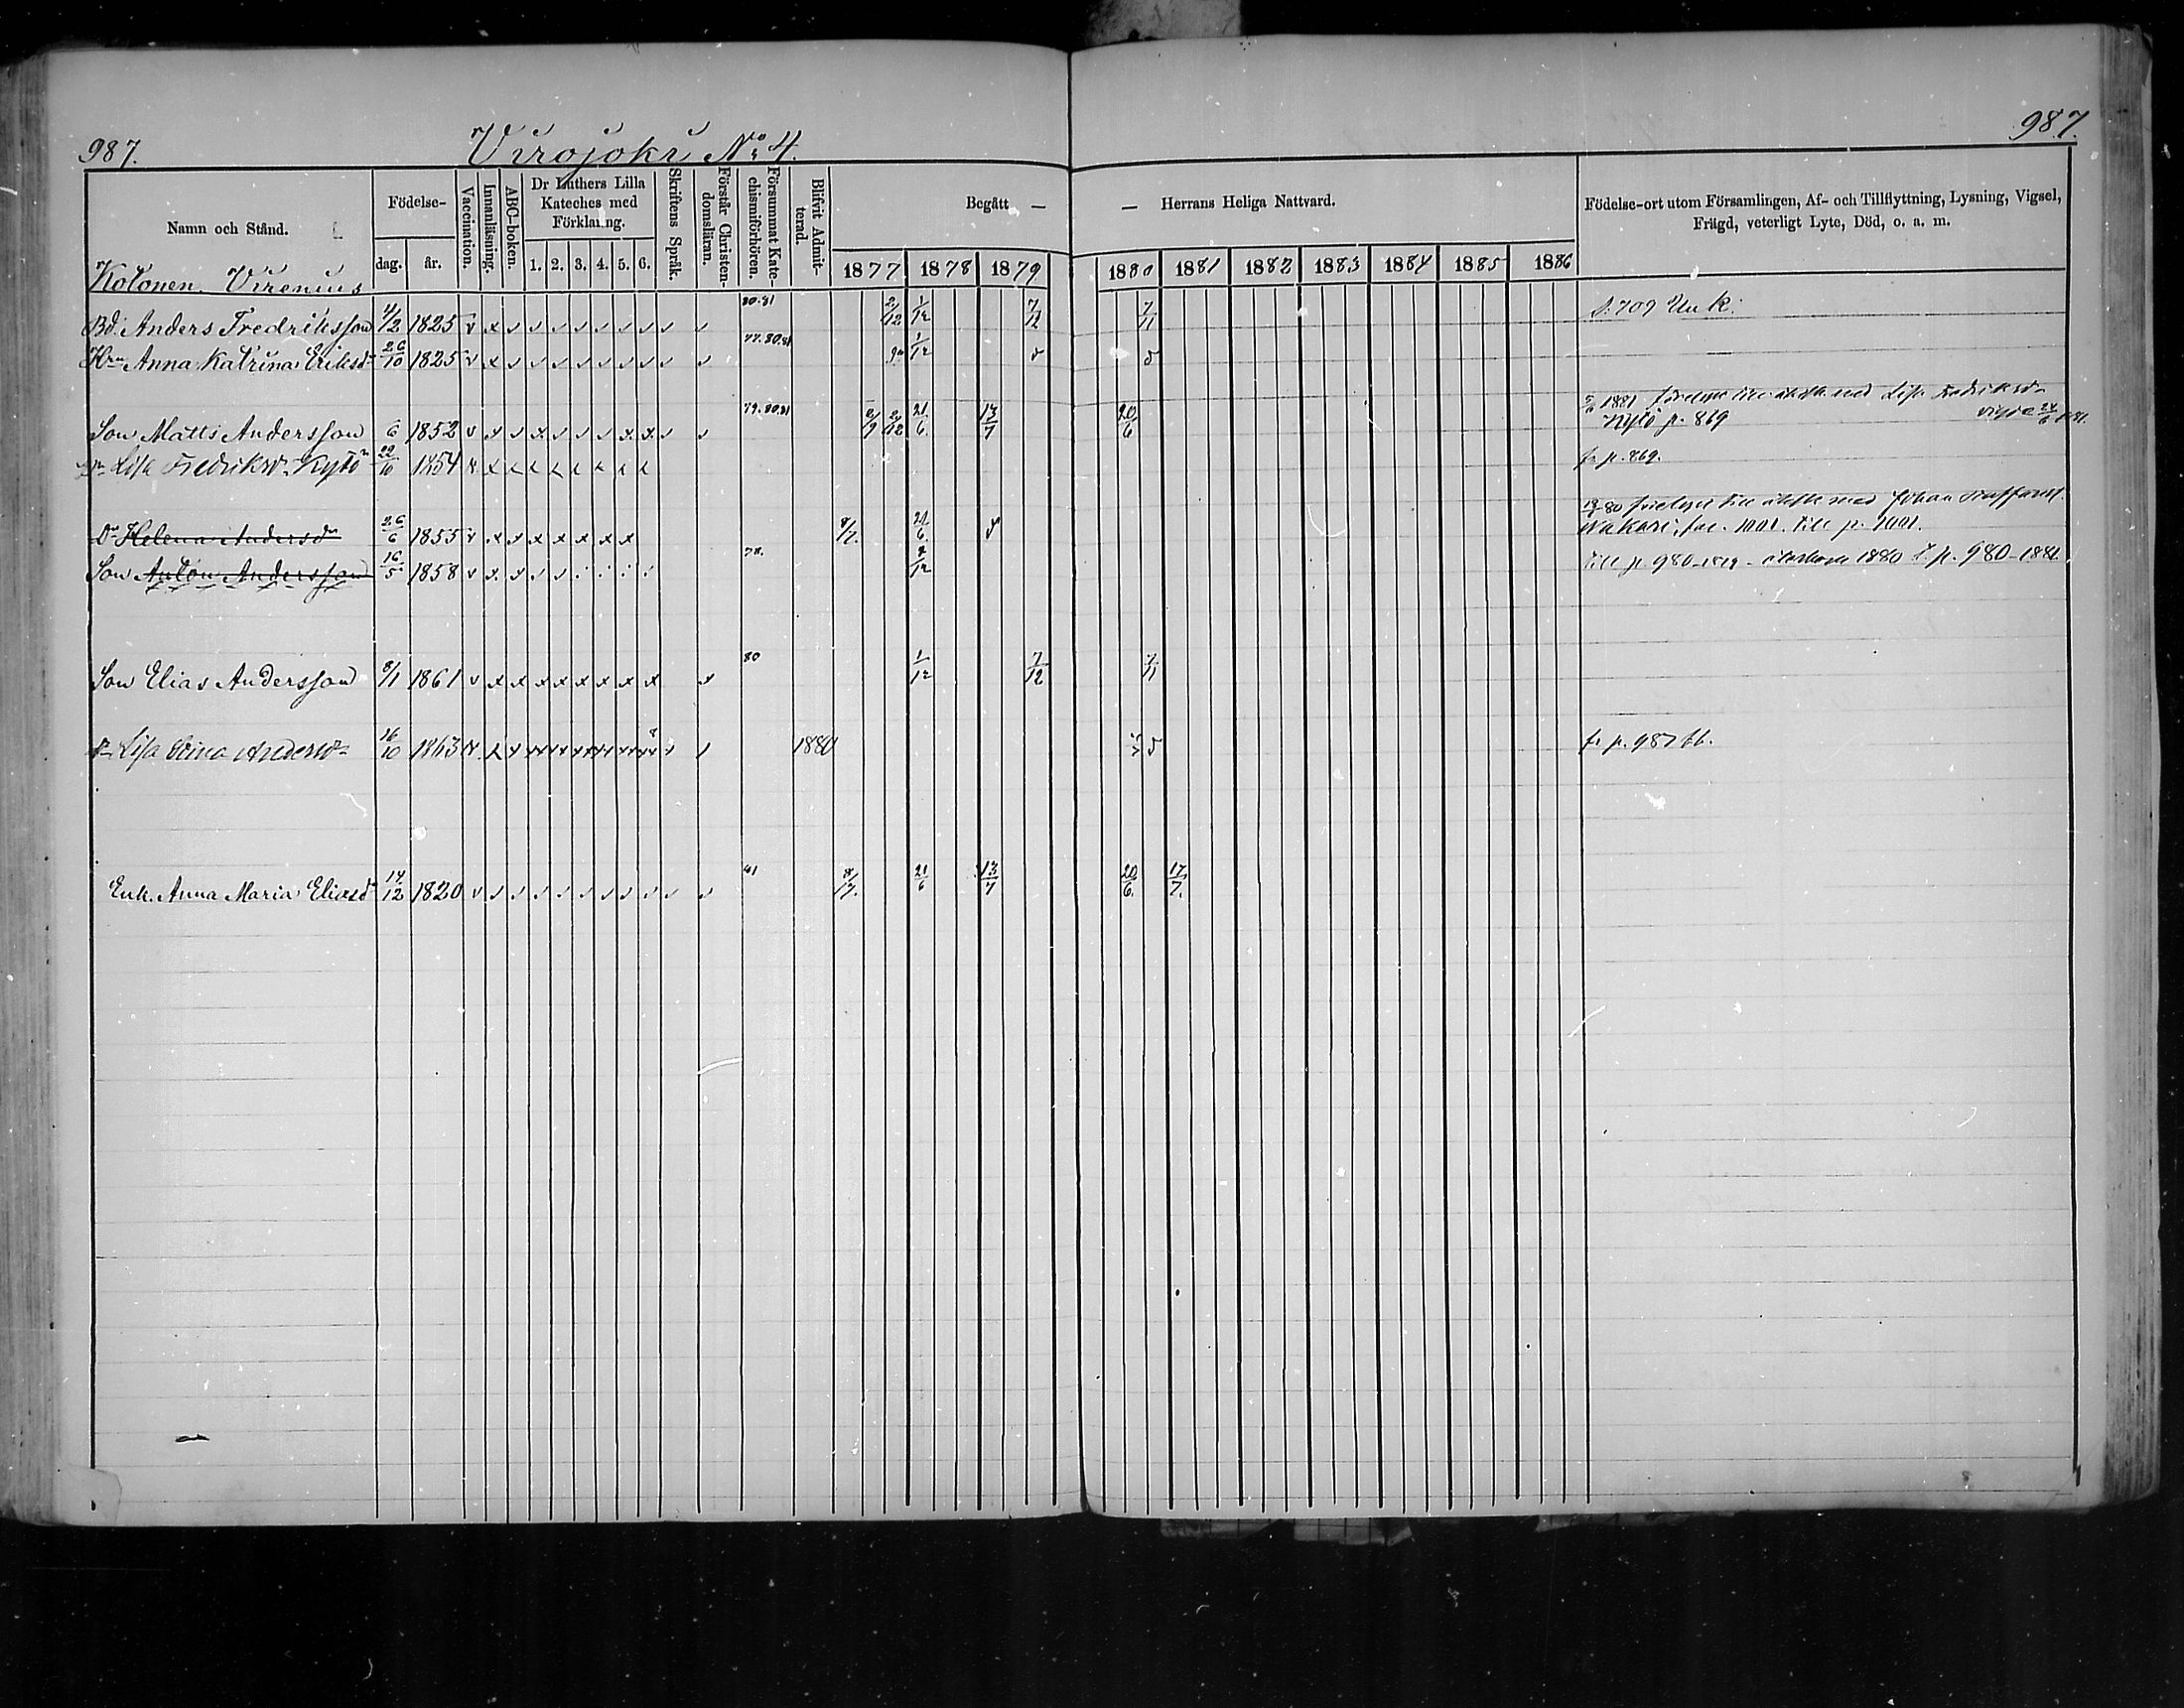 987.
Virojoki No 4.
987.
Namn och Stånd.
Födelse-
dag.
år.
Vaccination.
Innanläsning.
ABC-boken.
Dr Luthers Lilla Kateches med Förklaring.
1. 2. 3. 4. 5. 6.
Skriftens Språk.
Förstår Christendomsläran.
Försummat Katechismiförhören.
Blifvit Admitterad.
Begått — — Herrans Heliga Nattvard.
1877 1878 1879 1880 1881 1882 1883 1884 1885 1886
Födelse-ort utom Församlingen, Af- och Tillflyttning, Lysning, Vigsel,
Frägd, veterligt Lyte, Död, o. a. m.
Kolonen. Virenius
Bd. Anders Fredriksson 4/2 1825 80.81 2/12 1/12 7/12 7/11 S. 709 Un k.
Hru Anna Katrina Eriksdr 26/10 1825 77.80.81 1/12
Son Matts Andersson 6/6 1852 79.80.81 2/12 21/6. 13/7 20/6 1881 Lisa Fredriksdr
Kytö p. 869
Lisa Fredriksdr Kytö 22/10 1854 fr p. 869.
Dr Helena Andersdr 26/6 1855 8/7. 21/6. 80 med Johan
p. 1001.
Son Anton Andersson 16/5 1858 78. 2/12 till p. 980 1880 p. 980 1881
Son Elias Andersson 8/1 1861 80 1/12 7/12 7/11
Dr Lisa Stina Andersdr 16/10 1863 1880 fr p. 987
Enk. Anna Maria Eliasdr 14/12 1820 8/7. 21/6 13/7 20/6. 17/7.